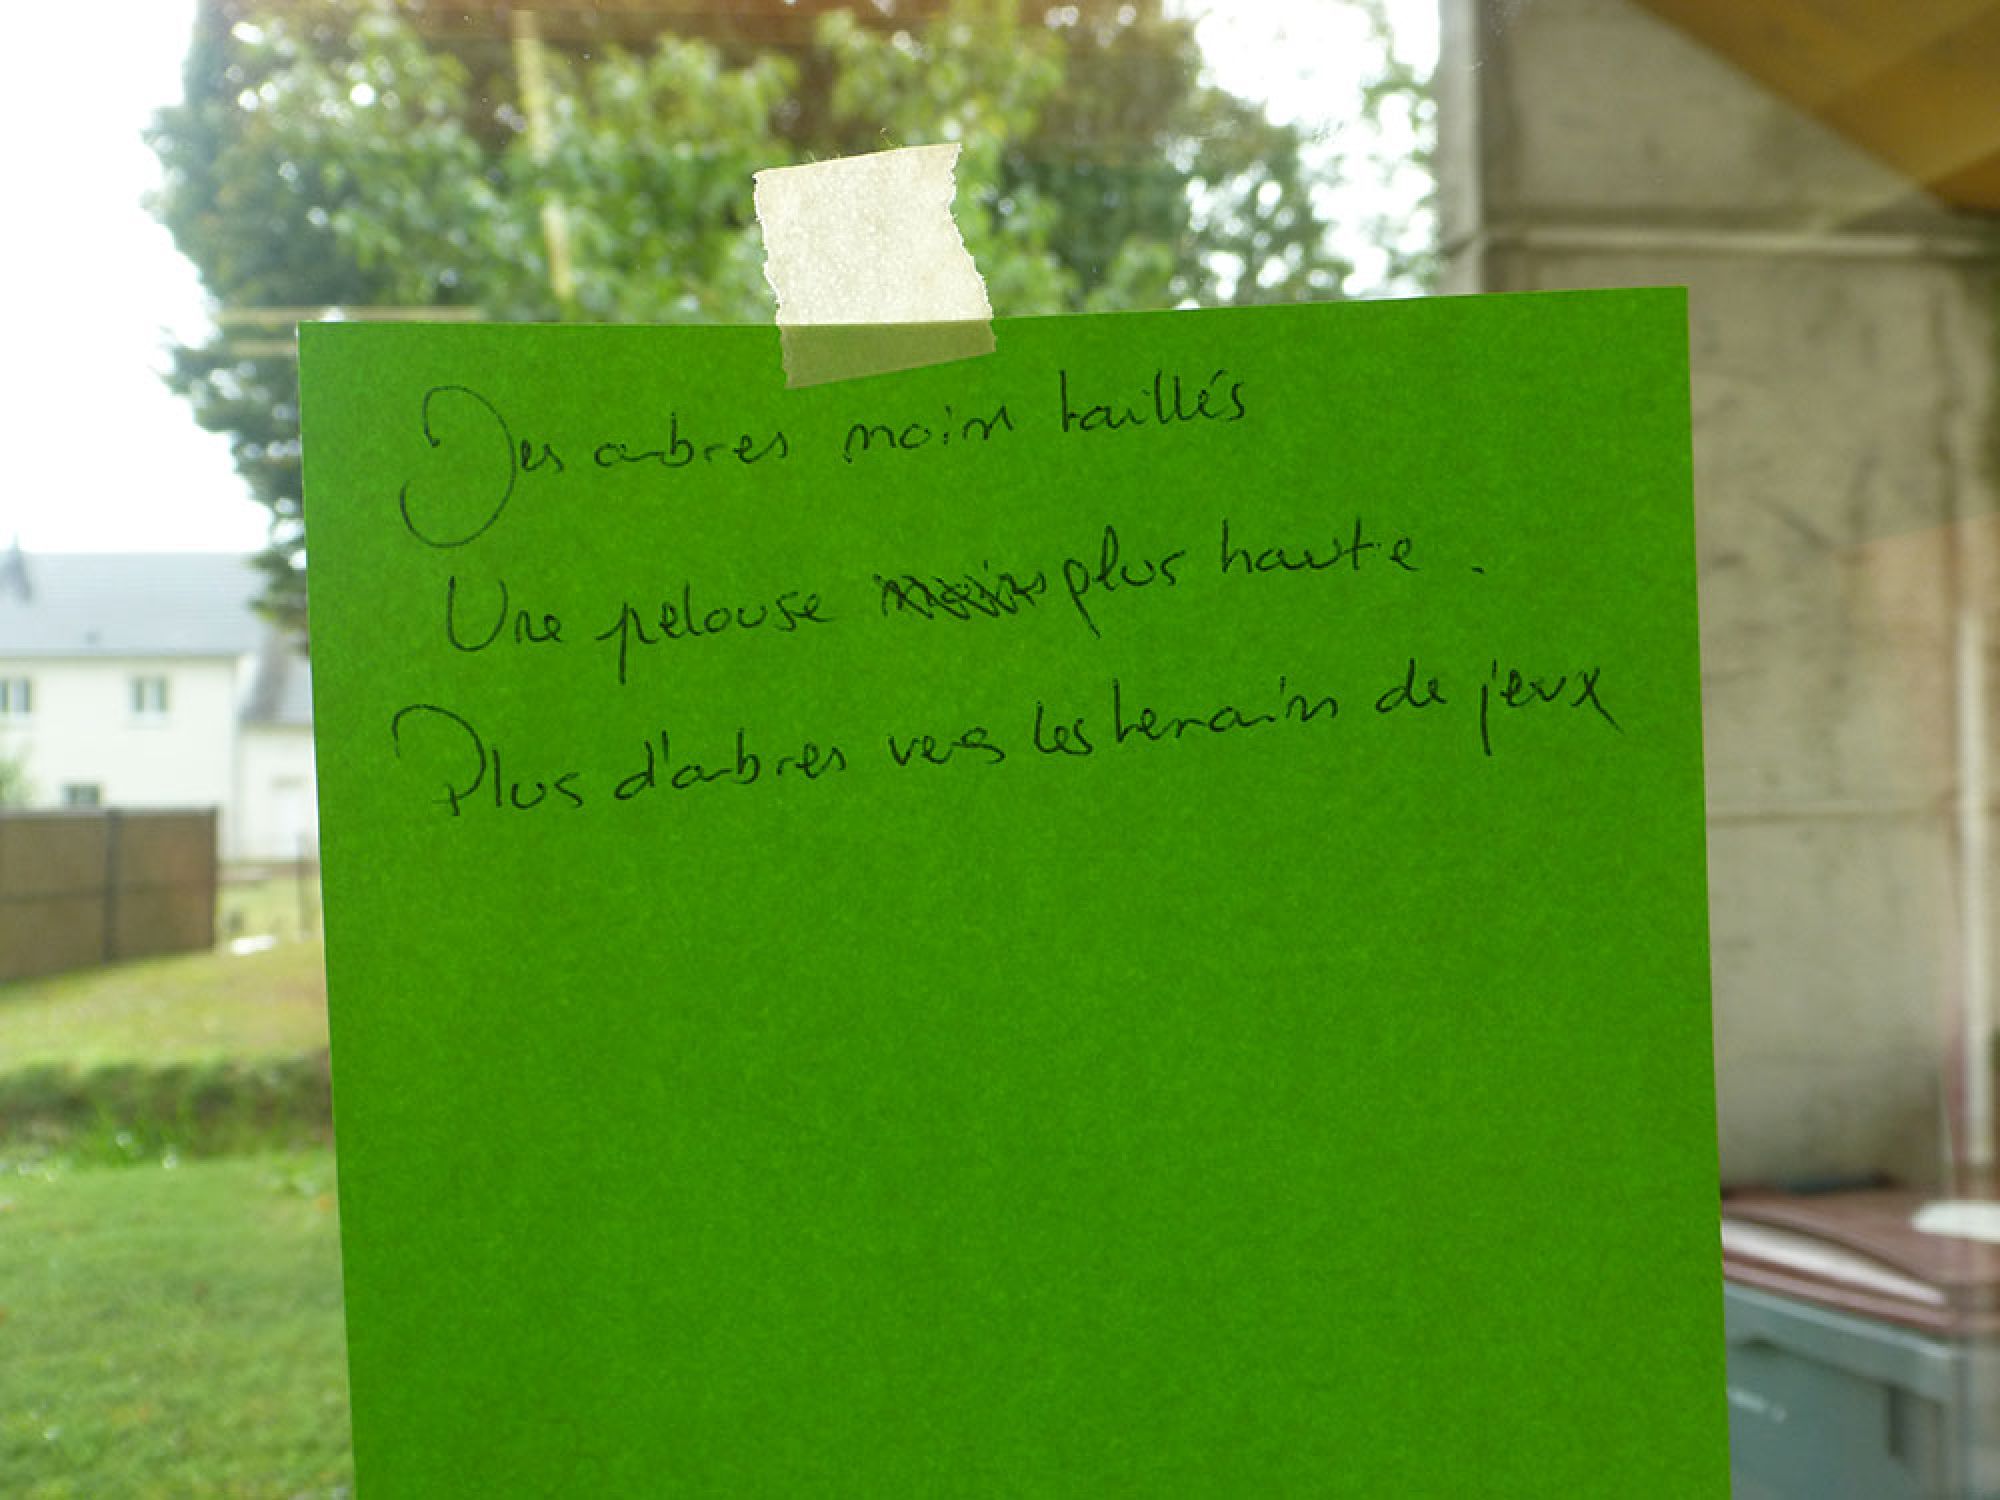 Des arbres moins taillés
Une pelouse plus haute.
Plus d'arbres vers les terrains de jeux